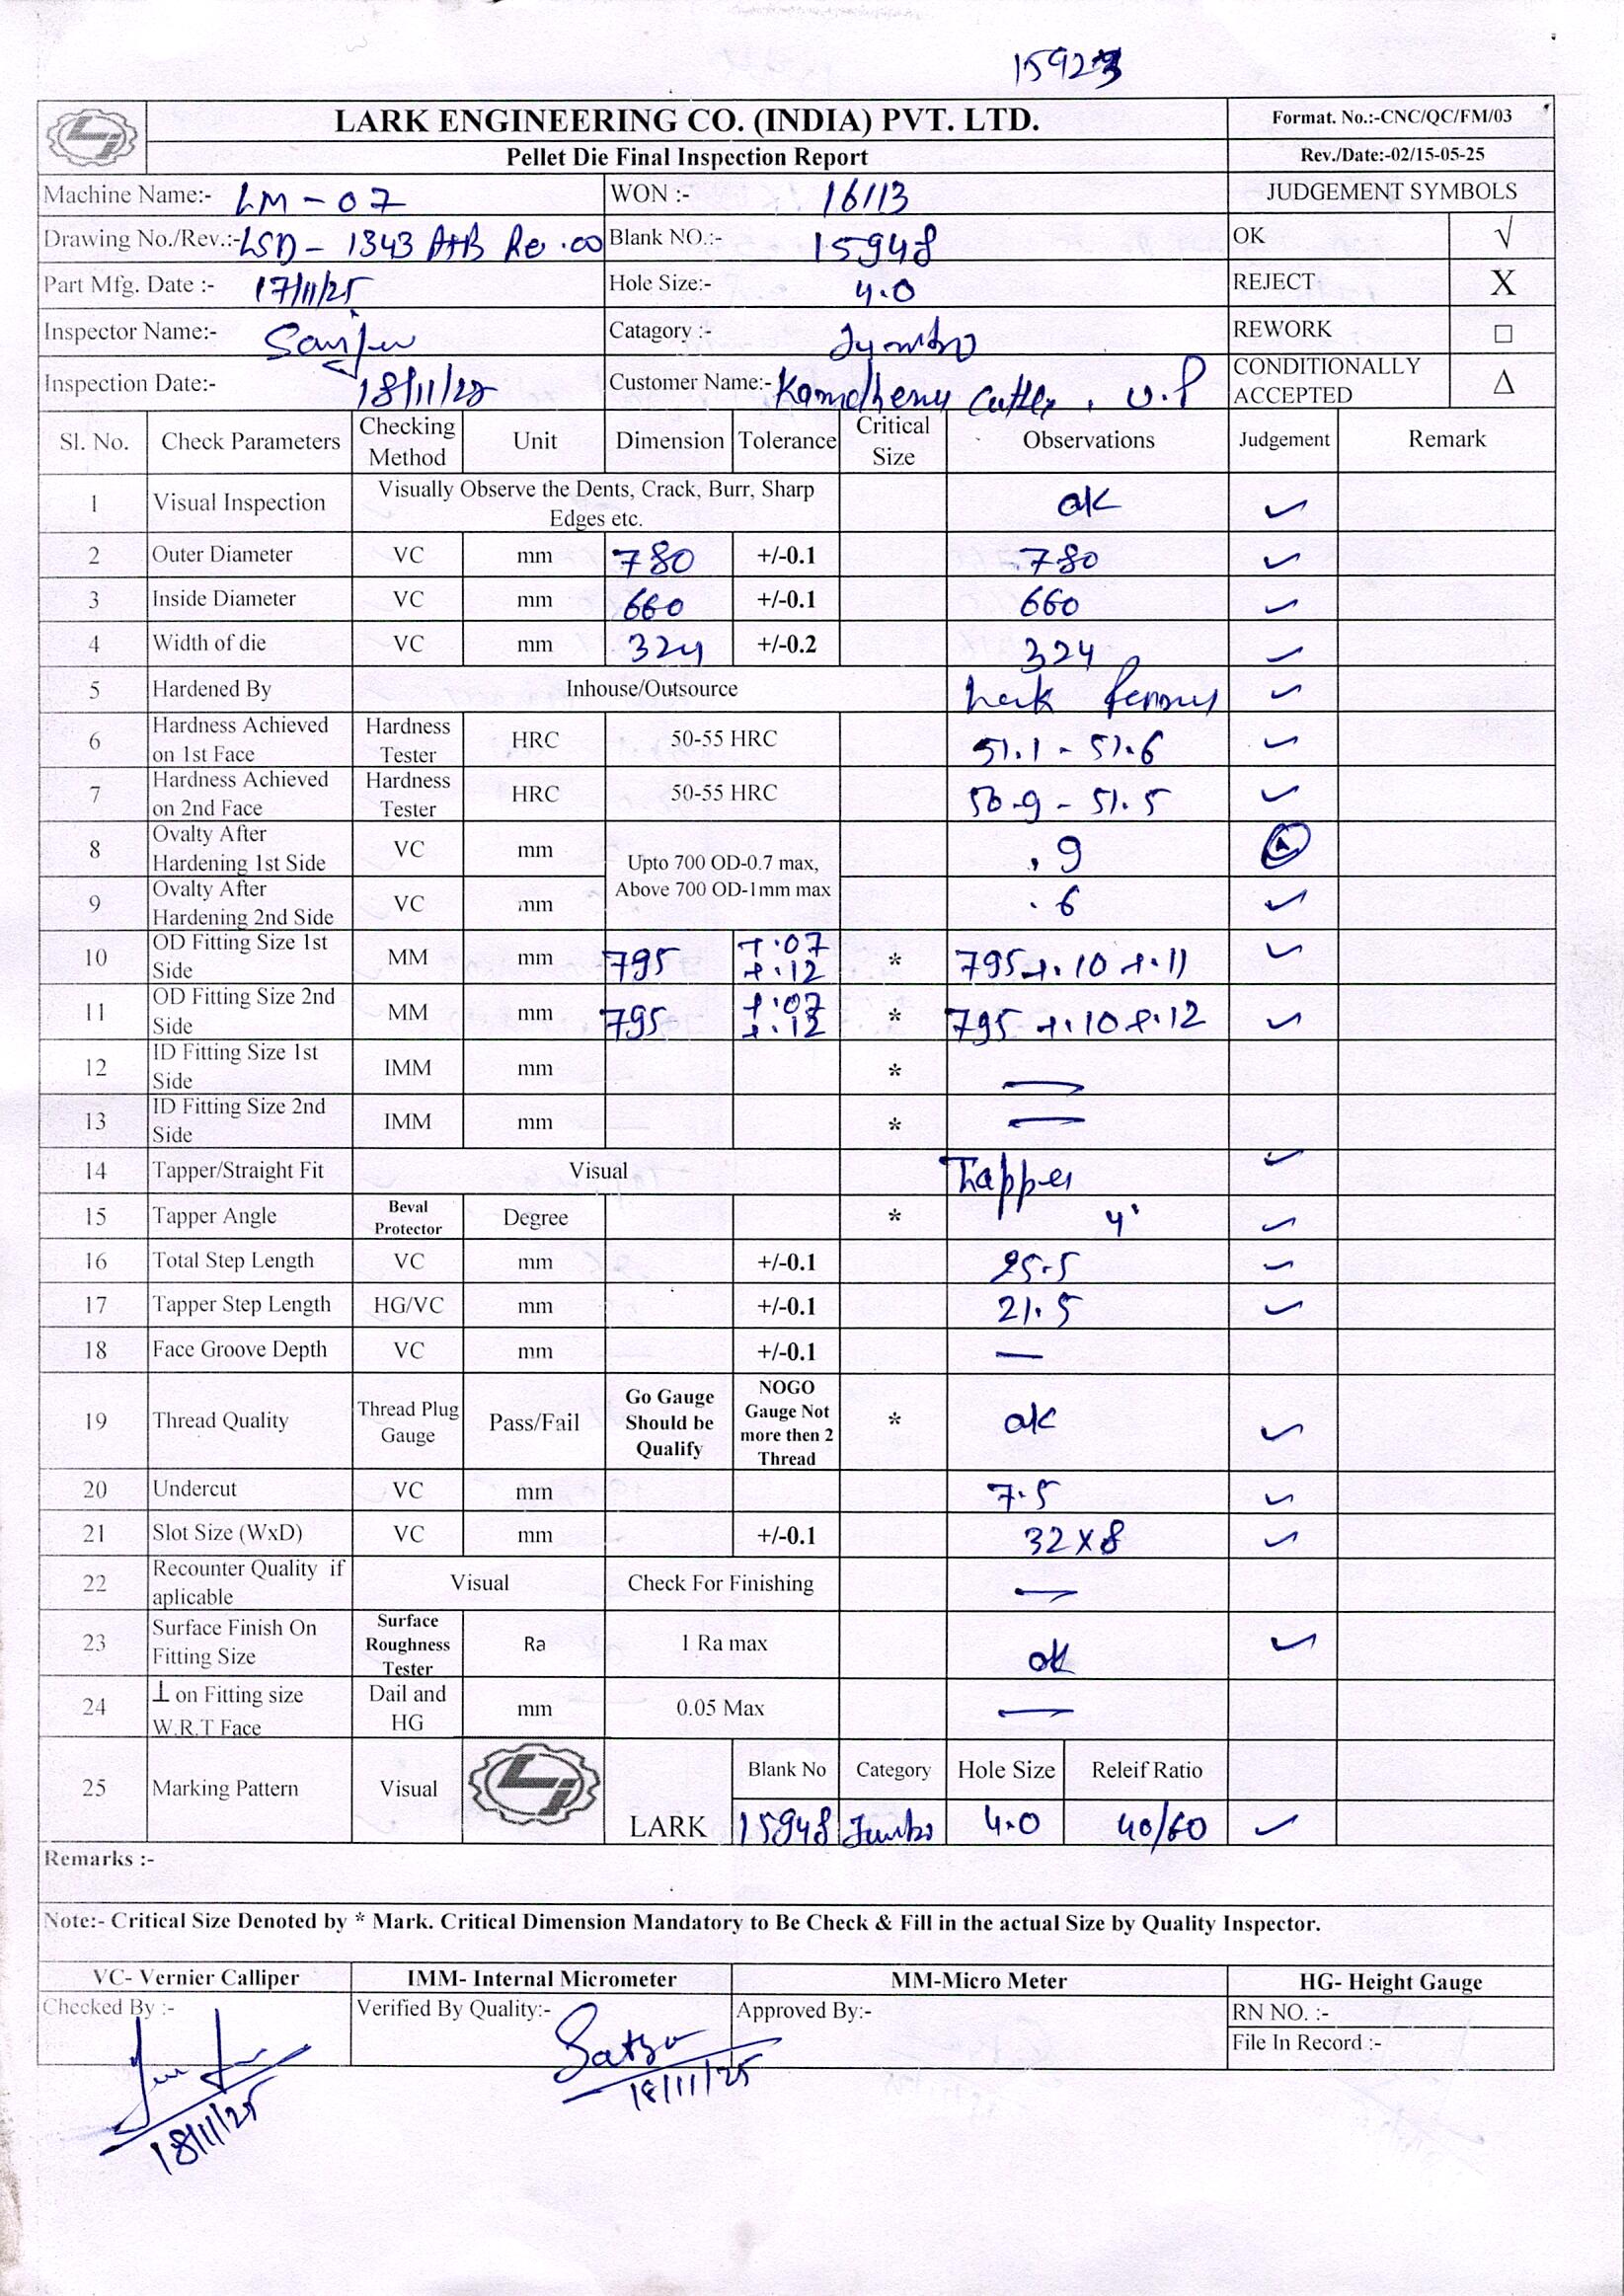 15923
LARK ENGINEERING CO. (INDIA) PVT. LTD.
Format. No.:-CNC/QC/FM/03
Pellet Die Final Inspection Report
Rev./Date:-02/15-05-25
Machine Name:- LM-07 WON :- 16113 JUDGEMENT SYMBOLS
Drawing No./Rev.:- LSD-1343 A+B Re.00 Blank NO.:- 15948 OK √
Part Mfg. Date :- 17/11/25 Hole Size:- 4.0 REJECT X
Inspector Name:- Sanju Catagory :- Jumbo REWORK □
Inspection Date:- 18/11/25 Customer Name:- Kamdhenu Cattle, U.P CONDITIONALLY ACCEPTED Δ
Sl. No. Check Parameters Checking Method Unit Dimension Tolerance Critical Size Observations Judgement Remark
1 Visual Inspection Visually Observe the Dents, Crack, Burr, Sharp Edges etc. ok ✓
2 Outer Diameter VC mm 780 +/-0.1 780 ✓
3 Inside Diameter VC mm 660 +/-0.1 660 ✓
4 Width of die VC mm 324 +/-0.2 324 ✓
5 Hardened By Inhouse/Outsource ✓
6 Hardness Achieved on 1st Face Hardness Tester HRC 50-55 HRC 51.1 - 51.6 ✓
7 Hardness Achieved on 2nd Face Hardness Tester HRC 50-55 HRC 50.9 - 51.5 ✓
8 Ovalty After Hardening 1st Side VC mm Upto 700 OD-0.7 max, Above 700 OD-1mm max .9
9 Ovalty After Hardening 2nd Side VC mm .6 ✓
10 OD Fitting Size 1st Side MM mm 795 +.07 +.12 * 795 +.10 +.11 ✓
11 OD Fitting Size 2nd Side MM mm 795 +.07 +.12 * 795 +.10 +.12 ✓
12 ID Fitting Size 1st Side IMM mm * —
13 ID Fitting Size 2nd Side IMM mm * —
14 Tapper/Straight Fit Visual Tapper ✓
15 Tapper Angle Beval Protector Degree * 4° ✓
16 Total Step Length VC mm +/-0.1 25.5 ✓
17 Tapper Step Length HG/VC mm +/-0.1 21.5 ✓
18 Face Groove Depth VC mm +/-0.1 —
19 Thread Quality Thread Plug Gauge Pass/Fail Go Gauge Should be Qualify NOGO Gauge Not more then 2 Thread * ok ✓
20 Undercut VC mm 7.5 ✓
21 Slot Size (WxD) VC mm +/-0.1 32 X 8 ✓
22 Recounter Quality if aplicable Visual Check For Finishing —
23 Surface Finish On Fitting Size Surface Roughness Tester Ra 1 Ra max ok ✓
24 ⊥ on Fitting size W.R.T Face Dail and HG mm 0.05 Max —
25 Marking Pattern Visual LARK Blank No Category Hole Size Releif Ratio
15948 Jumbo 4.0 40/60 ✓
Remarks :-
Note:- Critical Size Denoted by * Mark. Critical Dimension Mandatory to Be Check & Fill in the actual Size by Quality Inspector.
VC- Vernier Calliper IMM- Internal Micrometer MM-Micro Meter HG- Height Gauge
Checked By :- Verified By Quality:- Approved By:- RN NO. :-
File In Record :-
18/11/25 18/11/25